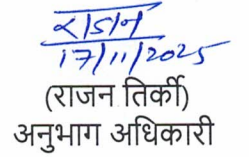 17/11/2025
(राजन तिर्की)
अनुभाग अधिकारी